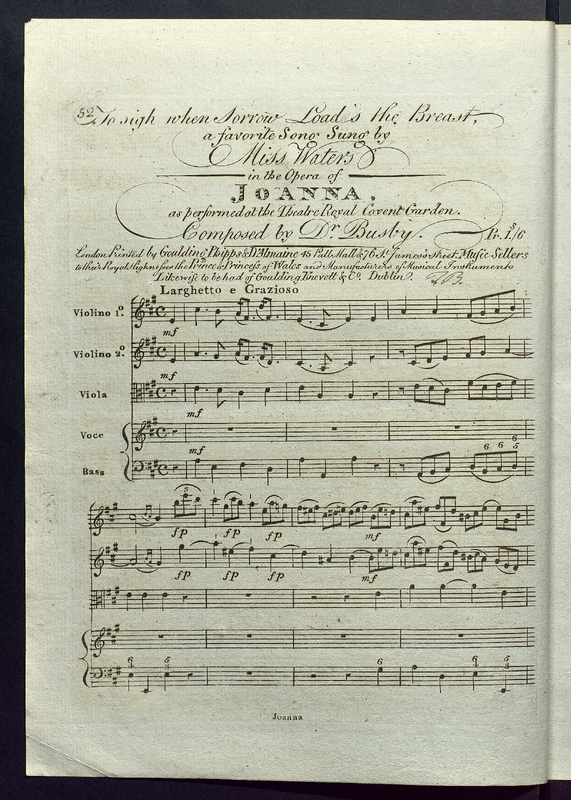 52 To sigh when Sorrow Load's the Breast,
a favorite Song Sung by
Miss Waters
in the Opera of
JOANNA,
as performed at the Theatre Royal Covent Garden.
Composed by Dr. Busby. Pr. 1s/6
London Printed by Goulding Phipps & D'Almaine 45 Pall Mall & 76 St. James's Street Music Sellers
to their Royal Highnesses the Prince & Princess of Wales and Manufacturers of Musical Instruments
Likewise to be had of Goulding Knevett & Co. Dublin.
Larghetto e Grazioso
Violino 1o.
mf
Violino 2o.
mf
Viola
mf
Voce
mf
6 6 6
Bass 5
3
fp fp fp mf
fp fp fp mf
6 5 6 6 5
4 3 4 3
Joanna